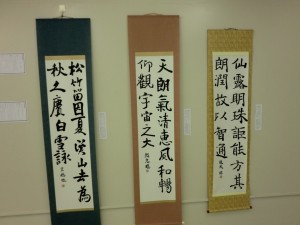 仙露明珠詎能方其
朗潤故以智通
天朗氣清惠風和暢
仰觀宇宙之大
松竹留因夏溪山去為
秋久賡白雪詠